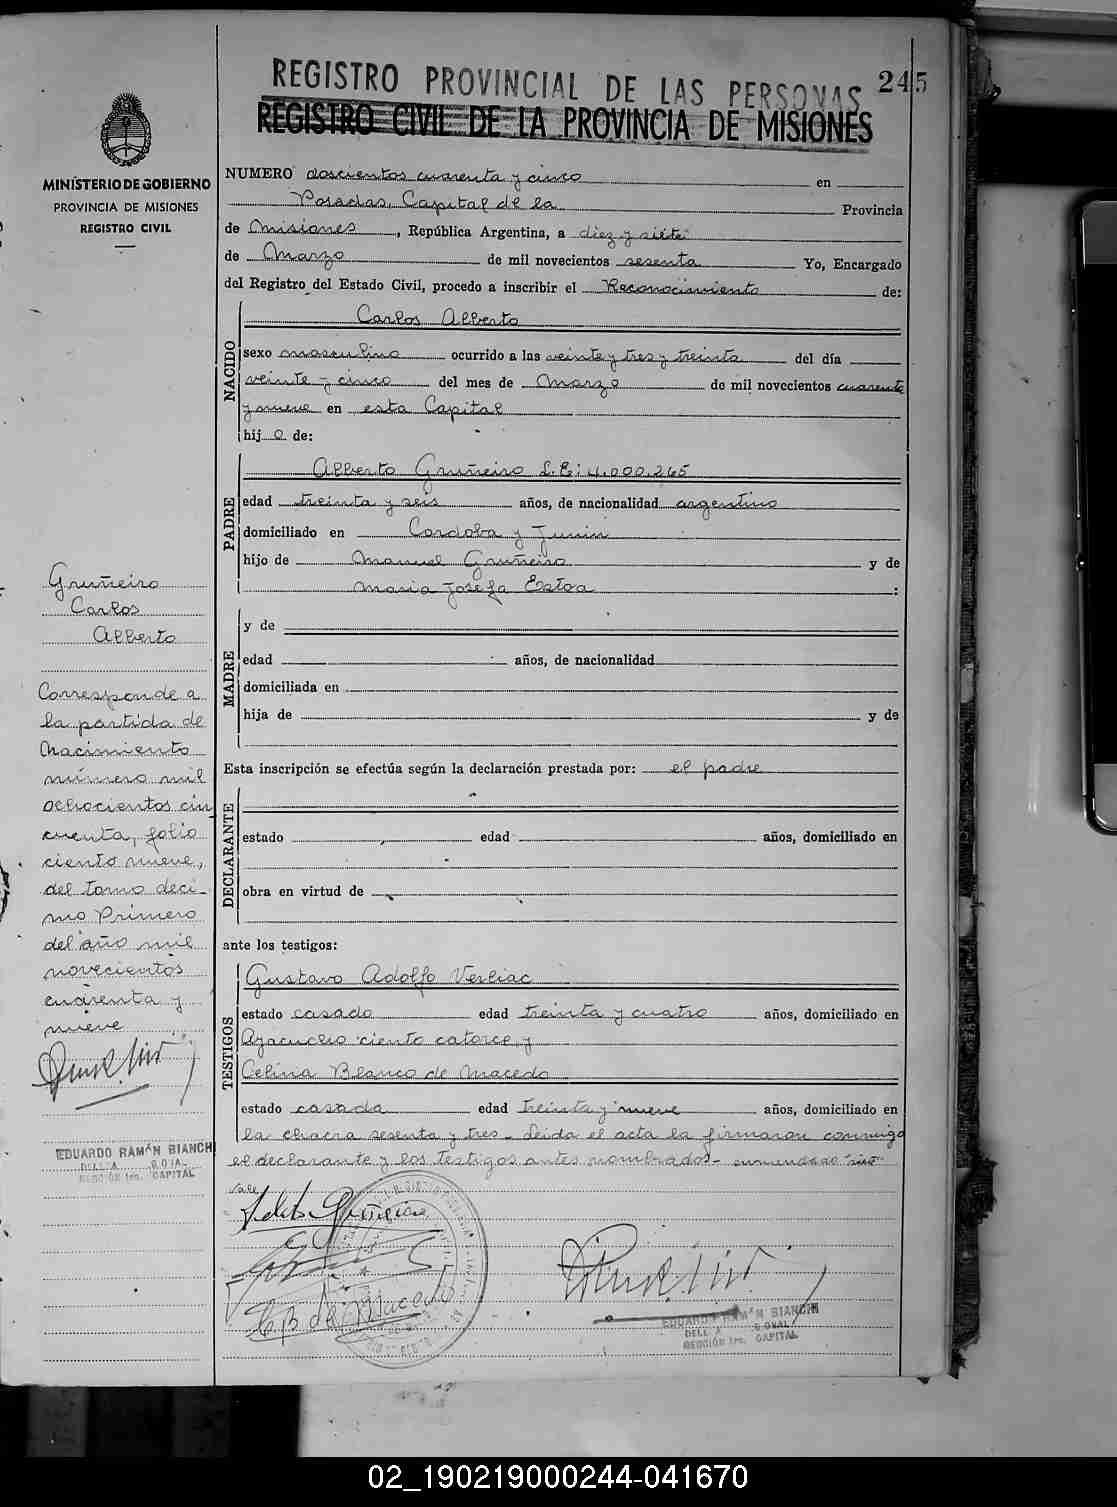 REGISTRO PROVINCIAL DE LAS PERSONAS 245
REGISTRO CIVIL DE LA PROVINCIA DE MISIONES
MINISTERIO DE GOBIERNO
PROVINCIA DE MISIONES
REGISTRO CIVIL
NUMERO doscientos cuarenta y cinco en
Posadas, Capital de la Provincia
de Misiones, República Argentina, a diez y siete
de Marzo de mil novecientos sesenta Yo, Encargado
del Registro del Estado Civil, procedo a inscribir el Reconocimiento de:
NACIDO
Carlos Alberto
sexo masculino ocurrido a las veinte y tres y treinta del día
veinte y cinco del mes de Marzo de mil novecientos cuarenta
y nueve en esta Capital
hij o de:
PADRE
Alberto Gruñeiro L.E: 4.000.265
edad treinta y seis años, de nacionalidad argentino
domiciliado en Cordoba y Junin
hijo de Manuel Gruñeiro y de
Maria Josefa :
MADRE
y de
edad años, de nacionalidad
domiciliada en
hija de y de
Esta inscripción se efectúa según la declaración prestada por: el padre
DECLARANTE
estado edad años, domiciliado en
obra en virtud de
ante los testigos:
TESTIGOS
Gustavo Adolfo Verliac
estado casado edad treinta y cuatro años, domiciliado en
Ayacucho ciento catorce, y
Celina Blanco de Macedo
estado casada edad treinta y nueve años, domiciliado en
la chacra sesenta y tres - Leida el acta la firmaron conmigo
el declarante y los testigos antes nombrados - enmendado
Vale
Gruñeiro
C B de Macedo
EDUARDO RAMÓN BIANCHI
SECCIÓN 1ra. CAPITAL
Gruñeiro
Carlos
Alberto
Corresponde a
la partida de
Nacimiento
número mil
ochocientos cin
cuenta, folio
ciento nueve,
del tomo deci-
mo Primero
del año mil
novecientos
cuarenta y
nueve
EDUARDO RAMÓN BIANCHI
SECCIÓN 1ra. CAPITAL
02_190219000244-041670